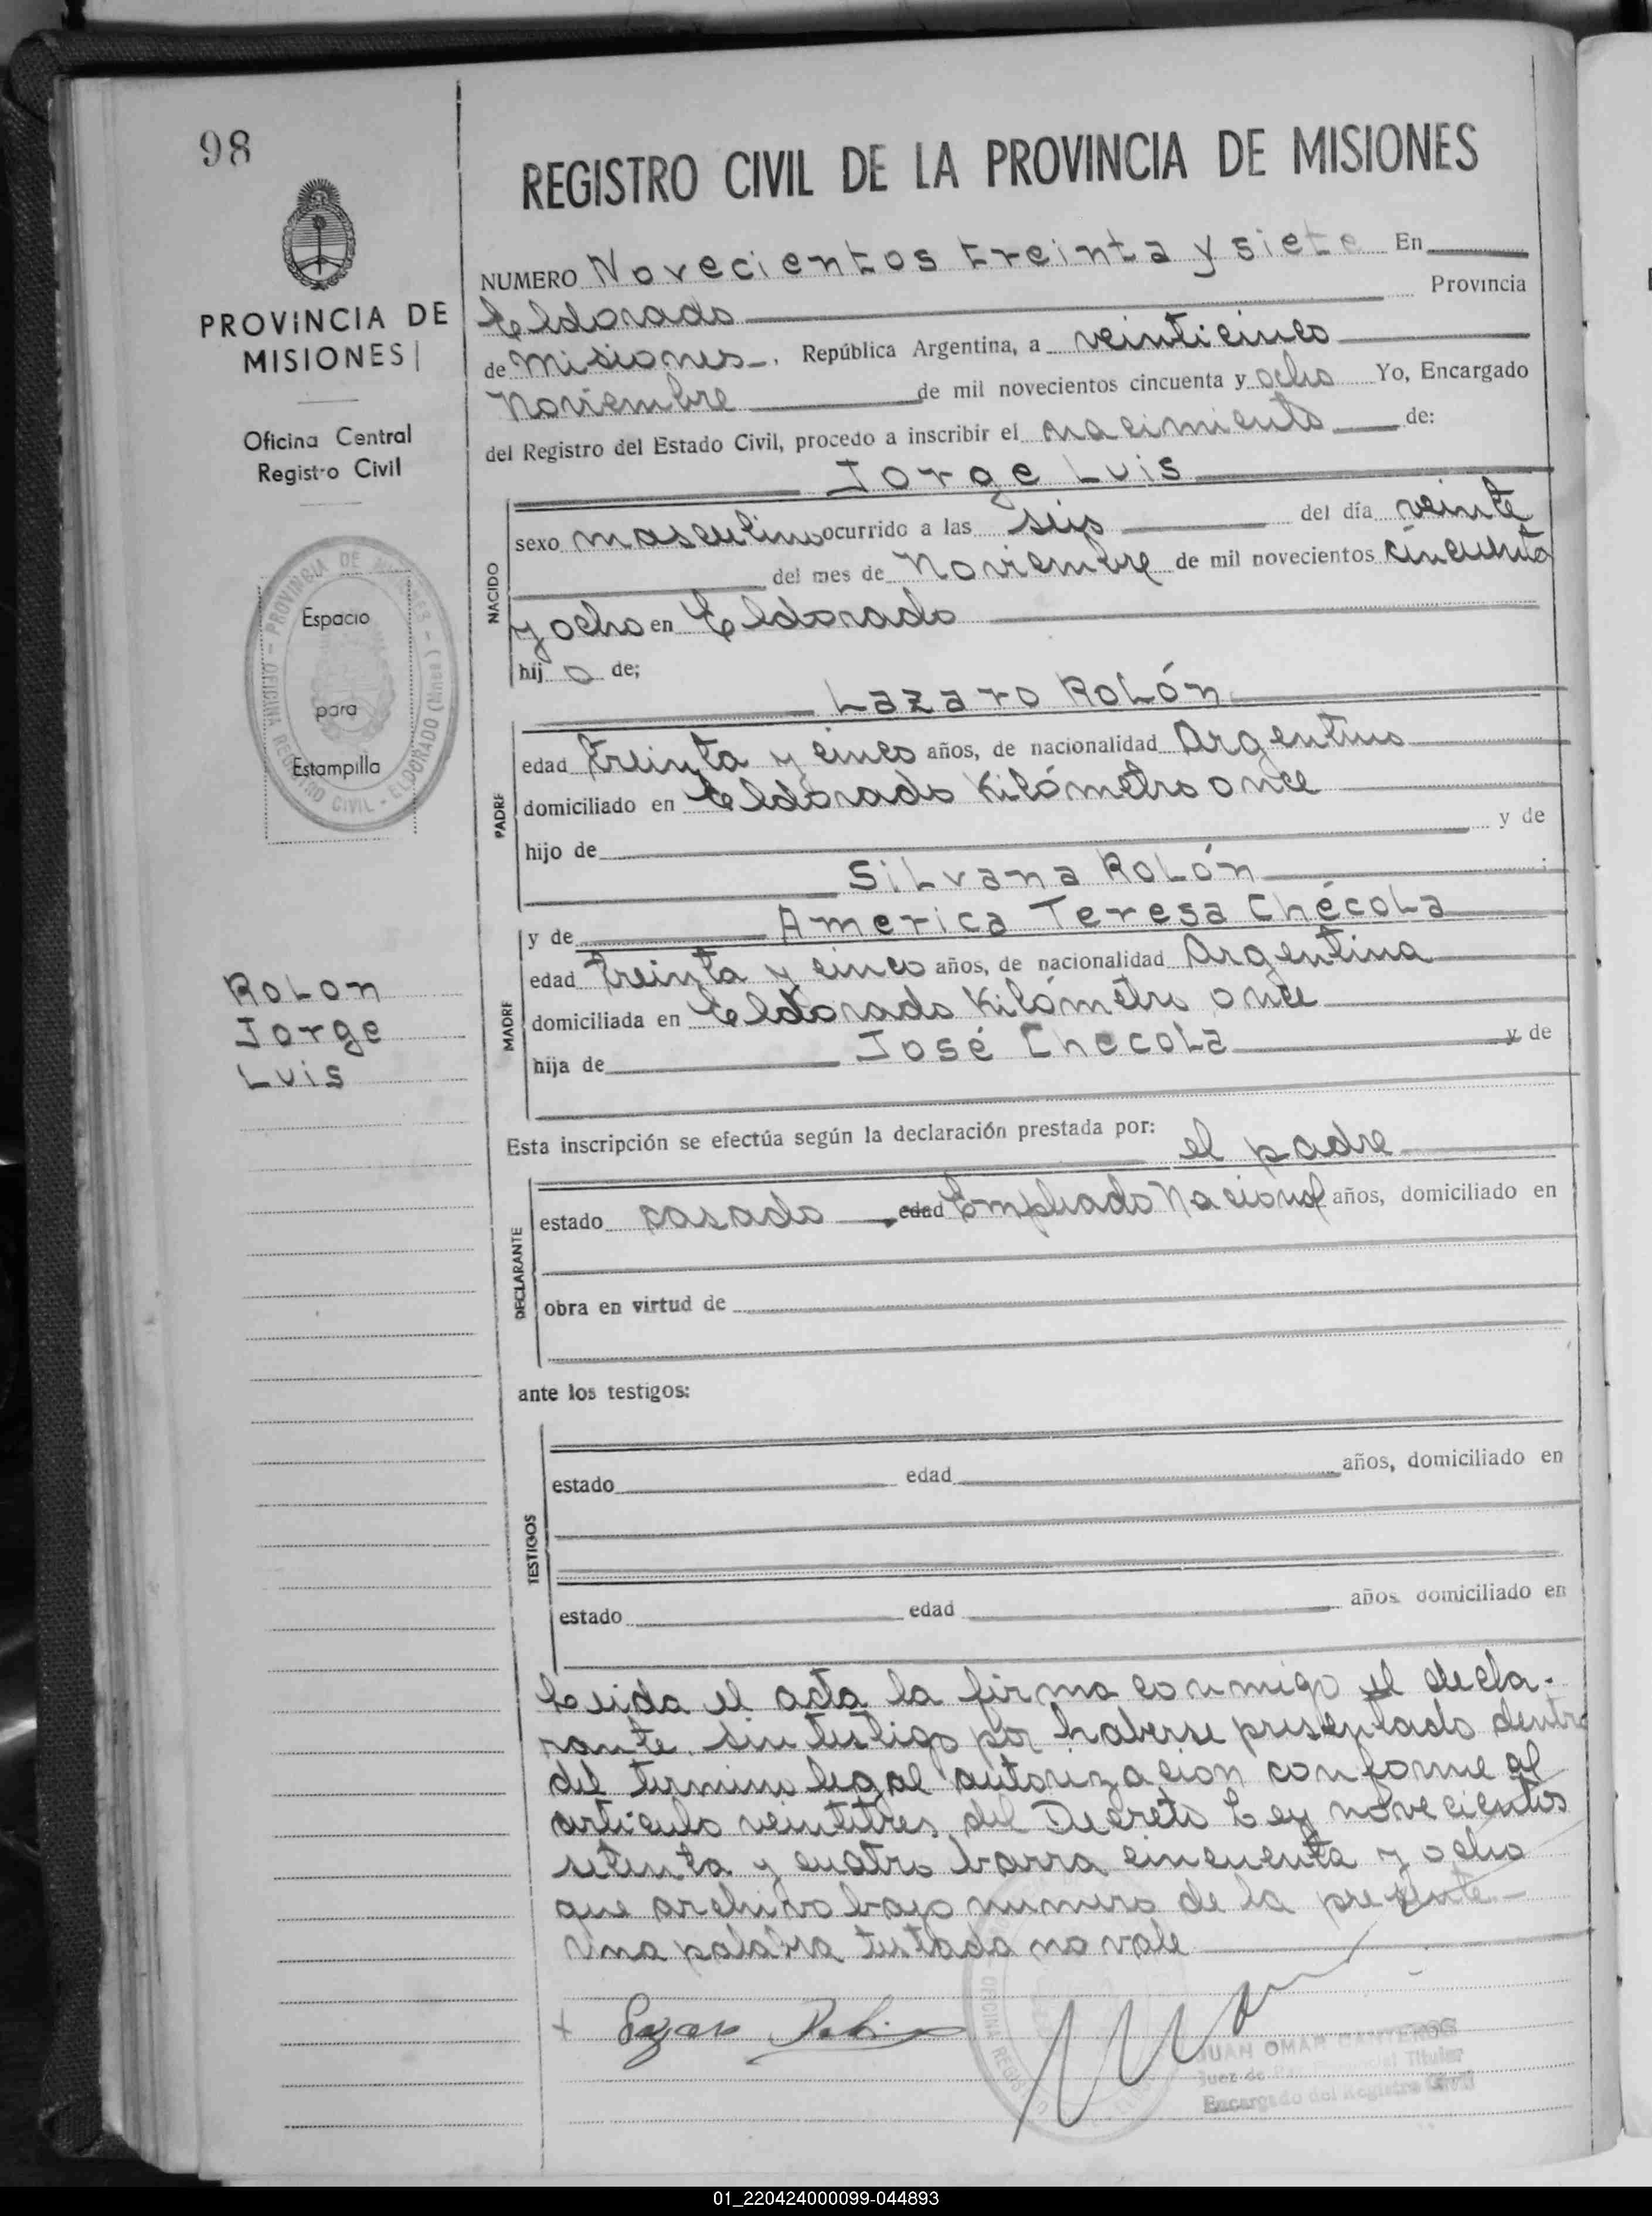 98
REGISTRO CIVIL DE LA PROVINCIA DE MISIONES
PROVINCIA DE
MISIONES
Oficina Central
Registro Civil
Espacio
para
Estampilla
PROVINCIA DE MISIONES - ELDORADO (Mnes.) - OFICINA REGISTRO CIVIL
Rolon
Jorge
Luis
NUMERO Novecientos treinta y siete En
Eldorado Provincia
de Misiones . República Argentina, a veinticinco
Noviembre de mil novecientos cincuenta y ocho Yo, Encargado
del Registro del Estado Civil, procedo a inscribir el nacimiento de:
Jorge Luis
NACIDO
sexo masculino ocurrido a las seis del día veinte
del mes de Noviembre de mil novecientos cincuenta
y ocho en Eldorado
hij o de;
Lazaro Rolón
PADRE
edad treinta y cinco años, de nacionalidad Argentino
domiciliado en Eldorado Kilómetro once
hijo de y de
Silvana Rolón
y de America Teresa Chécola
MADRE
edad treinta y cinco años, de nacionalidad Argentina
domiciliada en Eldorado Kilómetro once
hija de José Checola y de
Esta inscripción se efectúa según la declaración prestada por: el padre
DECLARANTE
estado casado edad Empleado Nacional años, domiciliado en
obra en virtud de
ante los testigos:
TESTIGOS
estado edad años, domiciliado en
estado edad años domiciliado en
Leida el acta la firma conmigo el decla-
rante sin testigo por haberse presentado dentro
del termino legal autorizacion conforme al
articulo veintitres del Decreto Ley novecientos
setenta y cuatro barra cincuenta y ocho
que archivo bajo numero de la presente-
Una palabra testada no vale
Lazaro Rolon
JUAN OMAR CANTEROS
Juez de Paz Titular
Encargado del Registro Civil
01_220424000099-044893